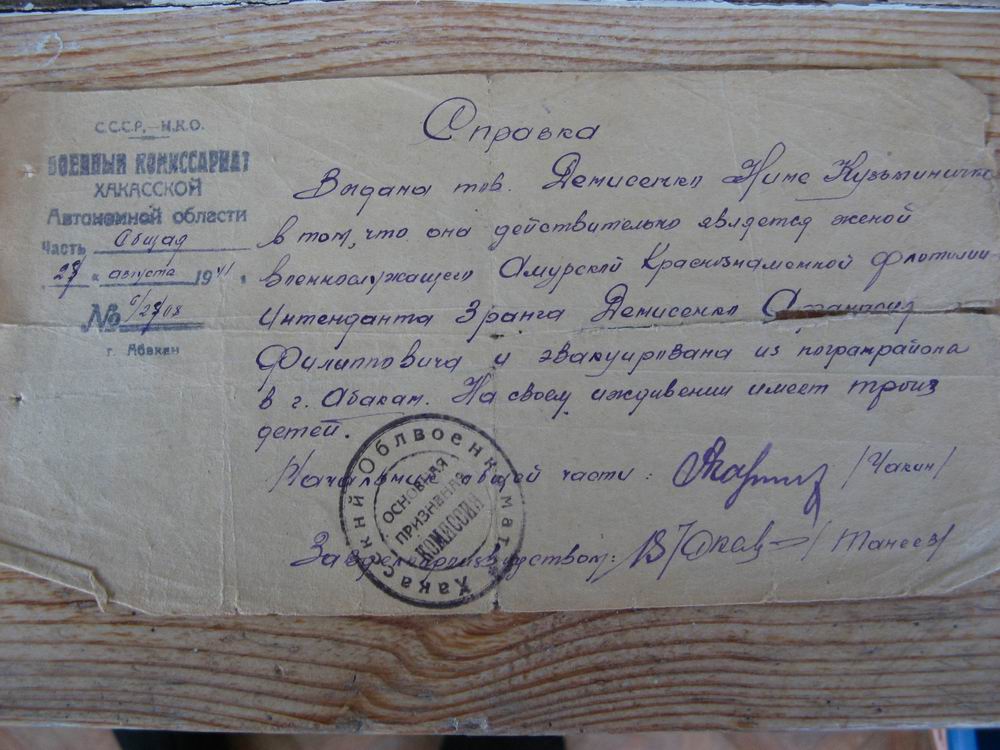 С.С.С.Р.–Н.К.О.
ВОЕННЫЙ КОМИССАРИАТ
ХАКАССКОЙ
Автономной области
Часть Общая
"27" августа 1941
№ 6/2708
г. Абакан
Справка
Выдана тов. Демисенко Нине Кузьминичне
в том, что она действительно является женой
военнослужащего Амурской Краснознаменной флотилии
Интенданта 3 ранга Демисенко Афанасия
Филипповича и эвакуирована из погранрайона
в г. Абакан. На своем иждивении имеет троих
детей.
Начальник общей части: /Чакин/
Завделопроизводством: /Танеев/
Хакасский Облвоенкомат
ОСНОВНАЯ
ПРИЗНЕВНАЯ
КОМИССИЯ